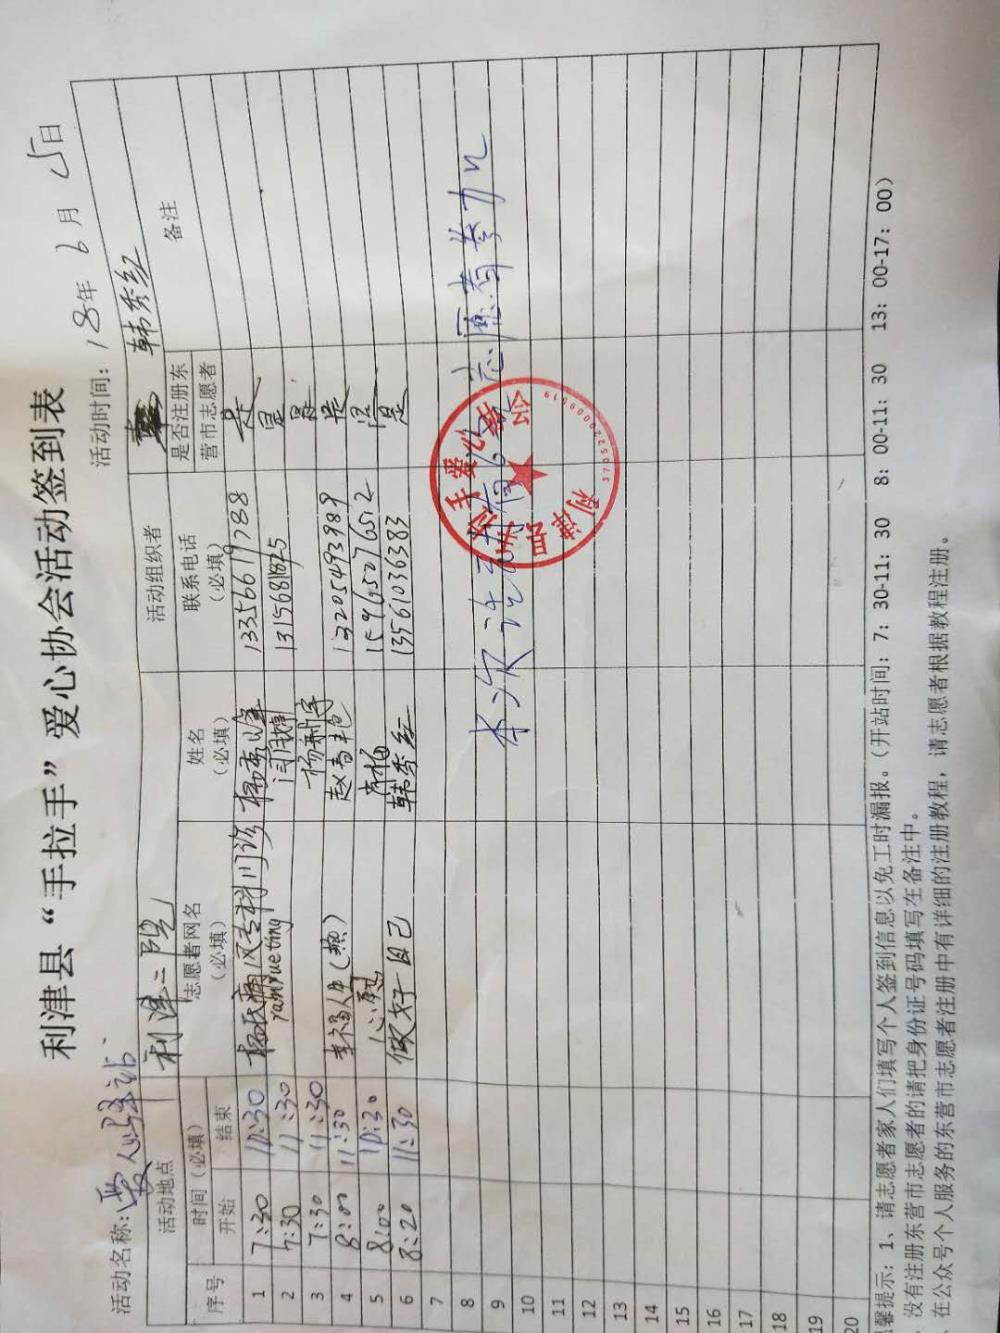 利津县“手拉手”爱心协会活动签到表
活动名称：爱心驿站 活动时间：18年6月5日
活动地点 利津二院 活动组织者 韩秀红
序号 时间（必填） 志愿者网名（必填） 姓名（必填） 联系电话（必填） 是否注册东营市志愿者 备注
开始 结束
1 7:30 10:30 杨氏痛风专科门诊 13356619788 是
2 7:30 11:30 yanxueting 是
3 7:30 11:30 杨利 是
4 8:00 11:30 幸福人生（燕） 赵春艳 13205493989 是
5 8:00 10:30 心愿 15965076512 是
6 8:20 11:30 做好自己 韩秀红 13561036383 是
7
8
9 本次活动有6名志愿者参加
10
11
12
13
14
15
16
17
18
19
20
利津县手拉手爱心协会
3705220009519
馨提示：1、请志愿者家人们填写个人签到信息以免工时漏报。（开站时间：7：30-11：30 8：00-11：30 13：00-17：00）
没有注册东营市志愿者的请把身份证号码填写在备注中。
在公众号个人服务的东营市志愿者注册中有详细的注册教程，请志愿者根据教程注册。